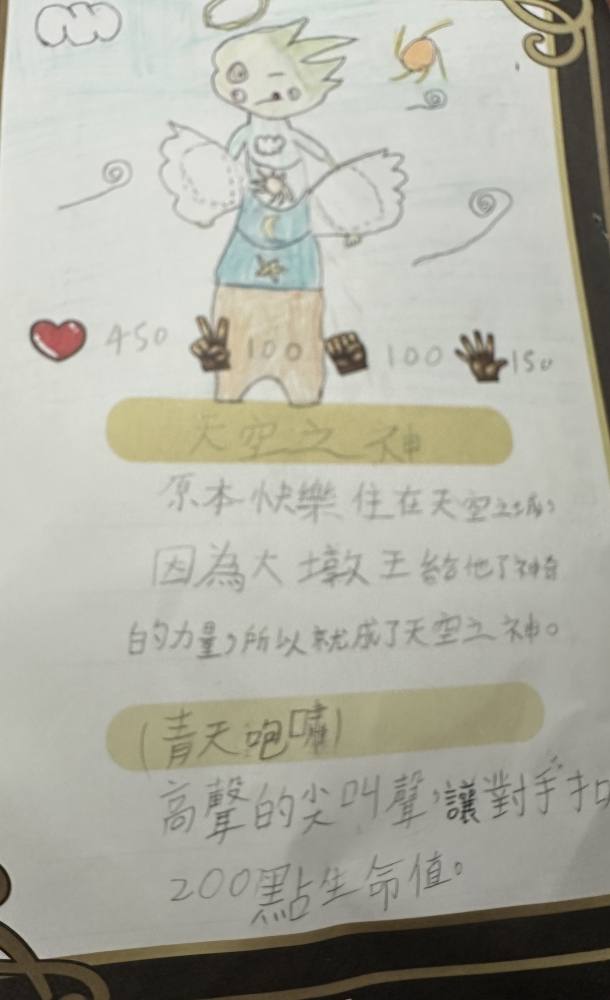 450 100 100 150
天空之神
原本快樂住在天空之城,
因為大墩王給他了神奇
的力量,所以就成了天空之神。
(青天咆嘯)
高聲的尖叫聲,讓對手扣
200點生命值。